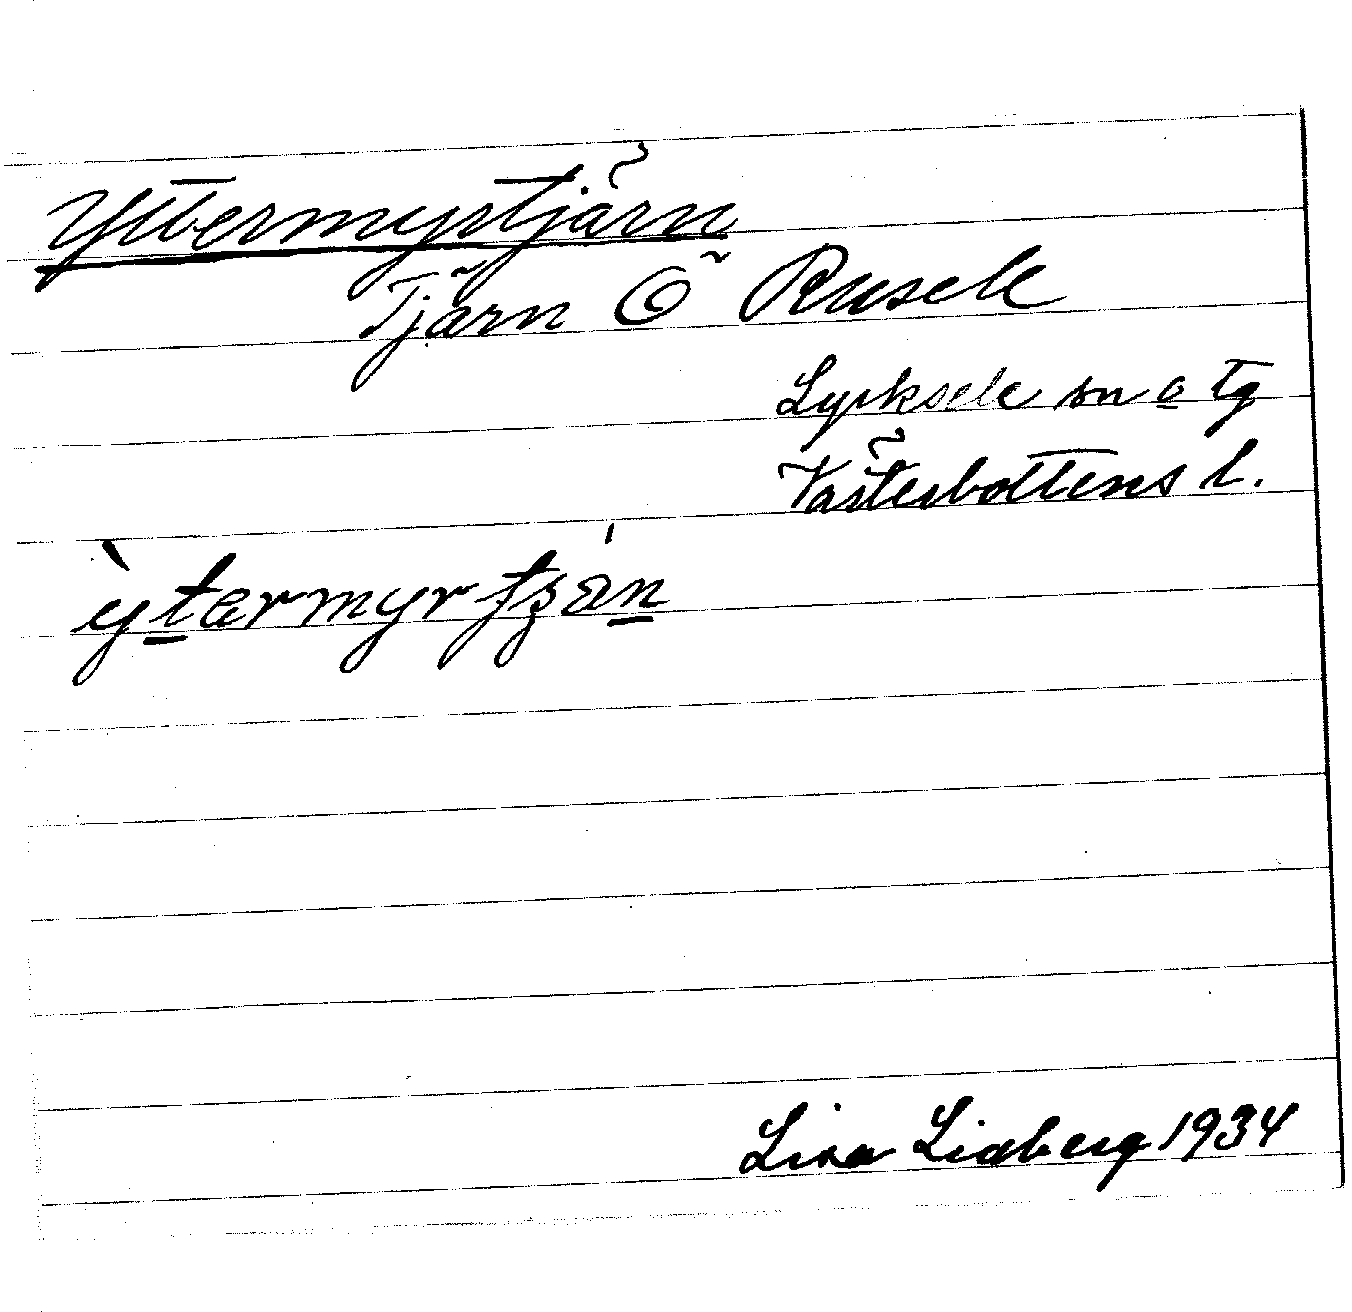 Yttermyrtjärn
Tjärn Ö Rusele
Lycksele sn o tg
Västerbottens l.
ỳtermyrtʒán
Lisa Lidberg 1934